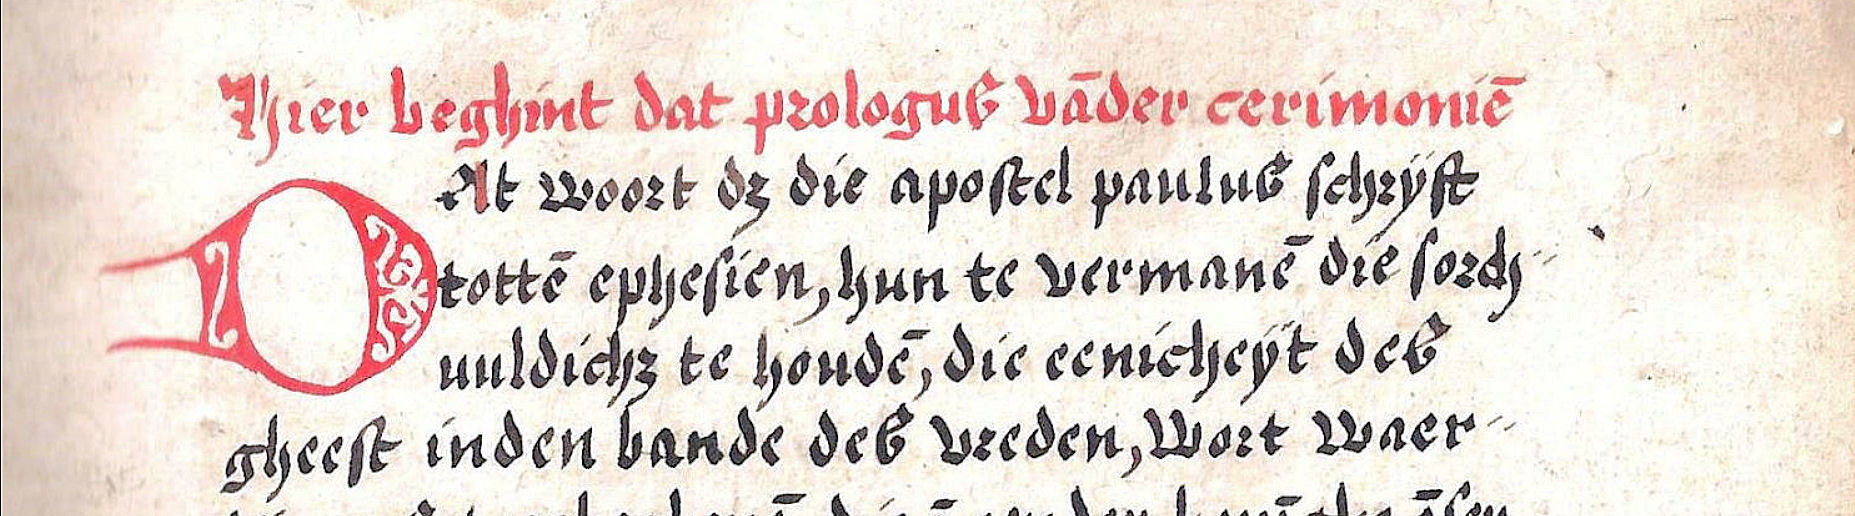 Hier beghint dat prologus vāder cerimoniē
DAt woort dz die apostel paulus schrÿft
tottē ephesien, hun te vermanē die sorch-
uuldichz te houdē, die eenicheÿt des
gheest inden bande des vreden, Wort waer-